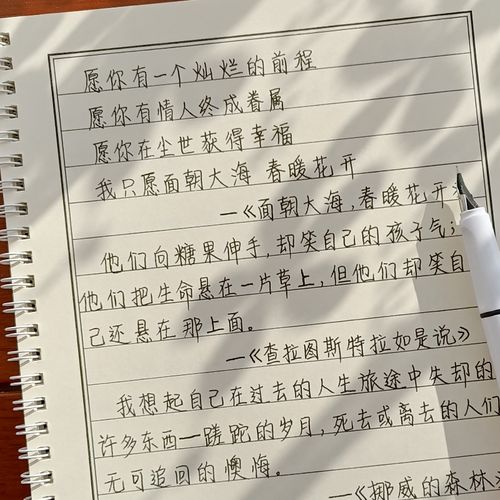 愿你有一个灿烂的前程
愿你有情人终成眷属
愿你在尘世获得幸福
我只愿面朝大海 春暖花开
—《面朝大海,春暖花开
他们向糖果伸手,却笑自己的孩子气;
他们把生命悬在一片草上,但他们却笑自
己还悬在那上面。
—《查拉图斯特拉如是说》
我想起自己在过去的人生旅途中失却的
许多东西—蹉跎的岁月,死去或离去的人们
无可追回的懊悔。
—《挪威的森林》